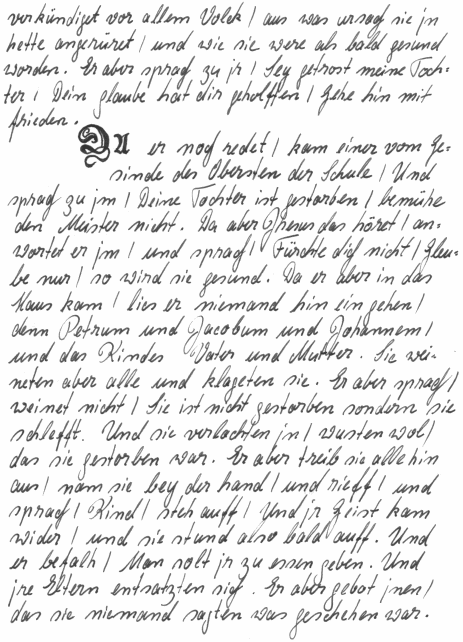 verkündiget vor allem Volck / aus was ursach sie jn
hette angerüret / und wie sie were als bald gesund
worden. Er aber sprach zu jr / Sey getrost meine Toch=
ter / Dein glaube hat dir geholffen / Gehe hin mit
frieden.
DA er noch redet / kam einer vom Ge=
sinde des Obersten der Schule / Und
sprach zu jm / Deine Tochter ist gestorben / bemühe
den Meister nicht. Da aber Jhesus das höret / an=
wortet er jm / und sprach / Fürchte dich nicht / Gleu=
be nur / so wird sie gesund. Da er aber in das
Haus kam / lies er niemand hin ein gehen /
denn Petrum und Jacobum und Johannem /
und das Kindes Vater und Mutter. Sie wei=
neten aber alle und klageten sie. Er aber sprach /
weinet nicht / Sie ist nicht gestorben sondern sie
schlefft. Und sie verlachten jn / wusten wol /
das sie gestorben war. Er aber treib sie alle hin
aus / nam sie bey der hand / und rieff / und
sprach / Kind / steh auff / Und jr Geist kam
wider / und sie stund also bald auff. Und
er befalh / Man solt jr zu essen geben. Und
jre Eltern entsatzten sich. Er aber gebot jnen /
das sie niemand sagten was geschehen war.